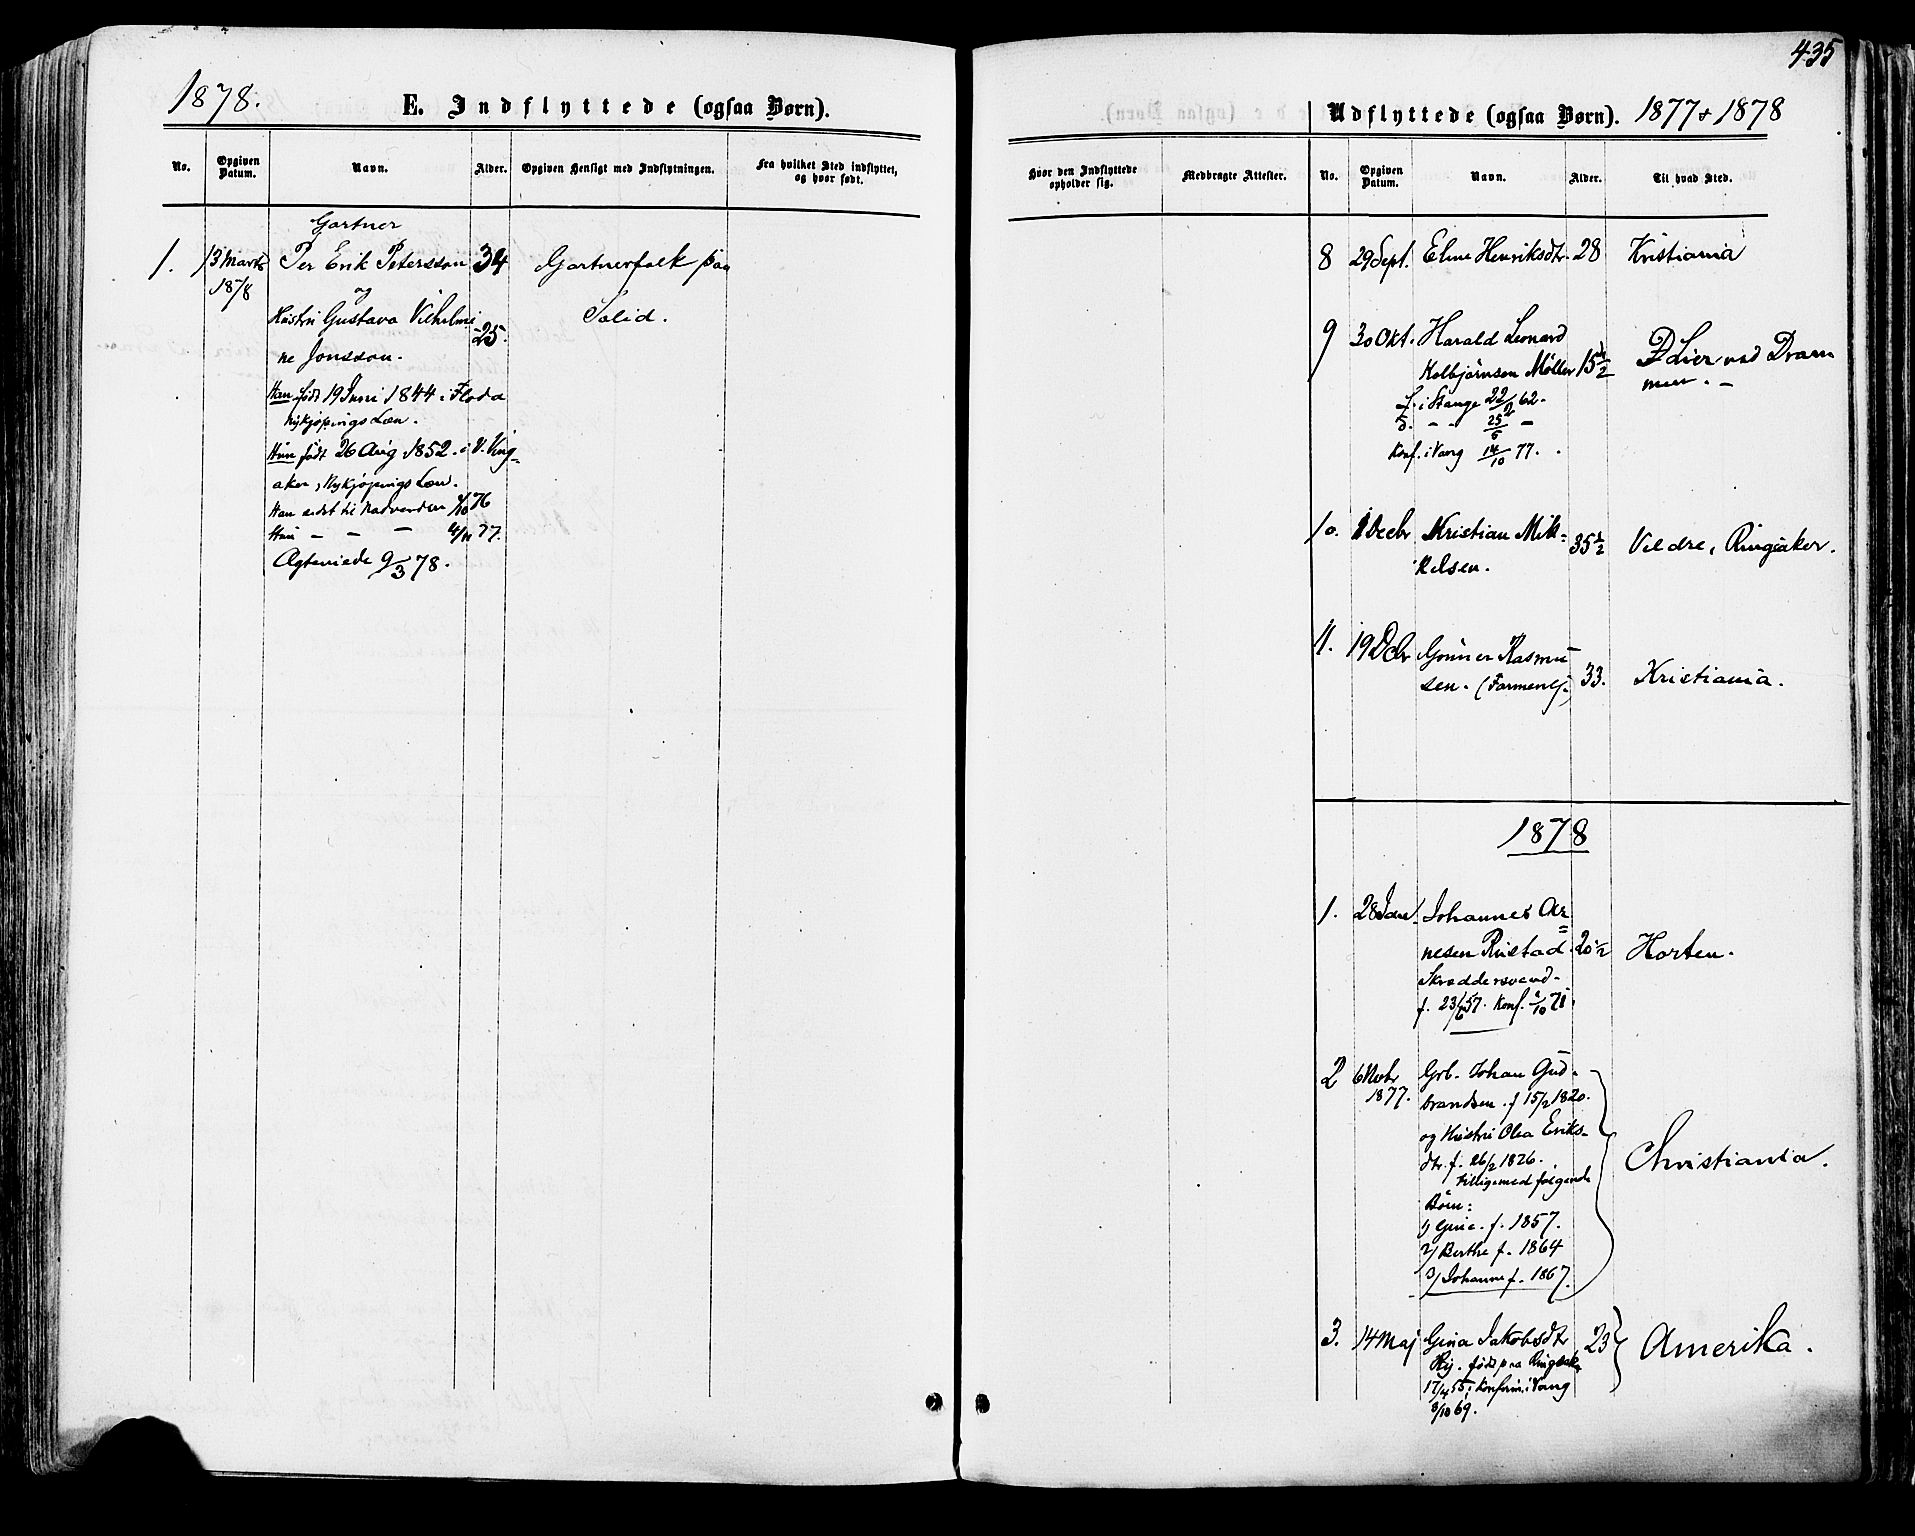 435
1878.
E. Indflyttede (ogsaa Børn).
No.
Opgiven Datum.
Navn.
Alder.
Opgiven Hensigt med Indflytningen.
Fra hvilket Sted indflyttet, og hvor født.
1.
13 Marts
1878
Gartner
Per Erik Petersson
34
og
Hustru Gustava Vilhelmi-
25.
ne Jonsson.
Han født 19 Juni 1844 i Floda
Nykjøpings Læn.
Hun født 26 Aug. 1852. i V. Ving-
aker, Nykjøpings Læn.
Han sidst til Nadverden 76
Hun - - - 4/11 77.
Ægteviede 9/3 78.
Gartnerfolk paa
Salid.
Udflyttede (ogsaa Børn). 1877 & 1878
Hvor den Indflyttede opholder sig.
Medbragte Attester.
No.
Opgiven Datum.
Navn.
Alder.
Til hvad Sted.
8 29 Sept. Eline Henriksdtr. 28 Kristiania
9 30 Okt. Harald Leonard
Kolbjørnsen Møller 15 1/2 Lier ved Dram
men. -
f. i Stange 22/2 62.
d. - - 25/5 -
Konf. i Vang 14/10 77.
10. 1 Decbr Kristian Mik-
kelsen. 35 1/2 Veldre, Ringsaker.
11. 19 Dcbr Gunner Rasmu
sen. (Farmenej.) 33. Kristiania.
1878
1. 28 Jan. Johannes Ar=
nesen Rustad 20 1/2 Horten.
Skreddersvend.
f. 23/6 57. Konf. 1/10 71.
2 6 Novbr
1877.
Grb. Johan Gud-
brandsen. f 15/2 1820.
og Hustru Olea Eriks-
dtr. f. 26/2 1826.
tilligemed følgende
Børn:
1) Gine. f. 1857.
2) Berthe f. 1864
3) Johanne f. 1867.
Christiania.
3. 14 Maj Gina Jakobsdtr 23 Amerika.
Pig. født paa Ringsaker
17/4 55, Konfirm. i Vang
3/10 69.